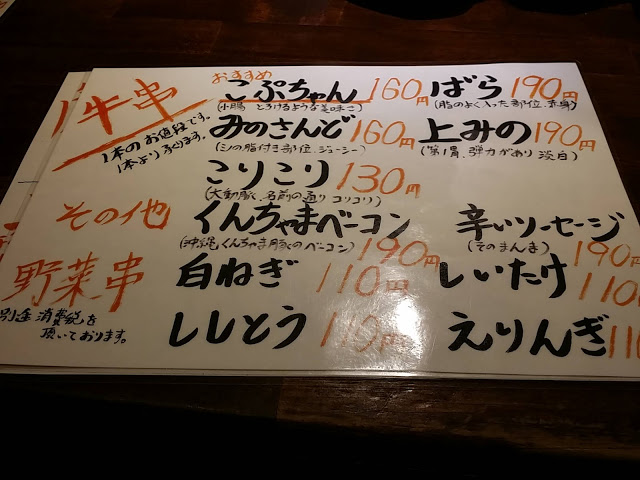 牛串
1本のお値段です。
1本より承ります。
おすすめ
こぷちゃん 160円
(小腸 とろけるような美味さ)
ばら 190円
(脂のよく入った部位、赤身)
みのさんど 160円
(ミノの脂付き部位、ジューシー)
上みの 190円
(第1胃、弾力があり 淡白)
こりこり 130円
(大動脈、名前の通り コリコリ)
その他
くんちゃまベーコン 190円
(沖縄、くんちゃま豚のベーコン)
辛いソーセージ 190円
(そのまんま)
野菜串
白ねぎ 110円
しいたけ 110
ししとう 110円
えりんぎ 110
別途消費税を
頂いております。